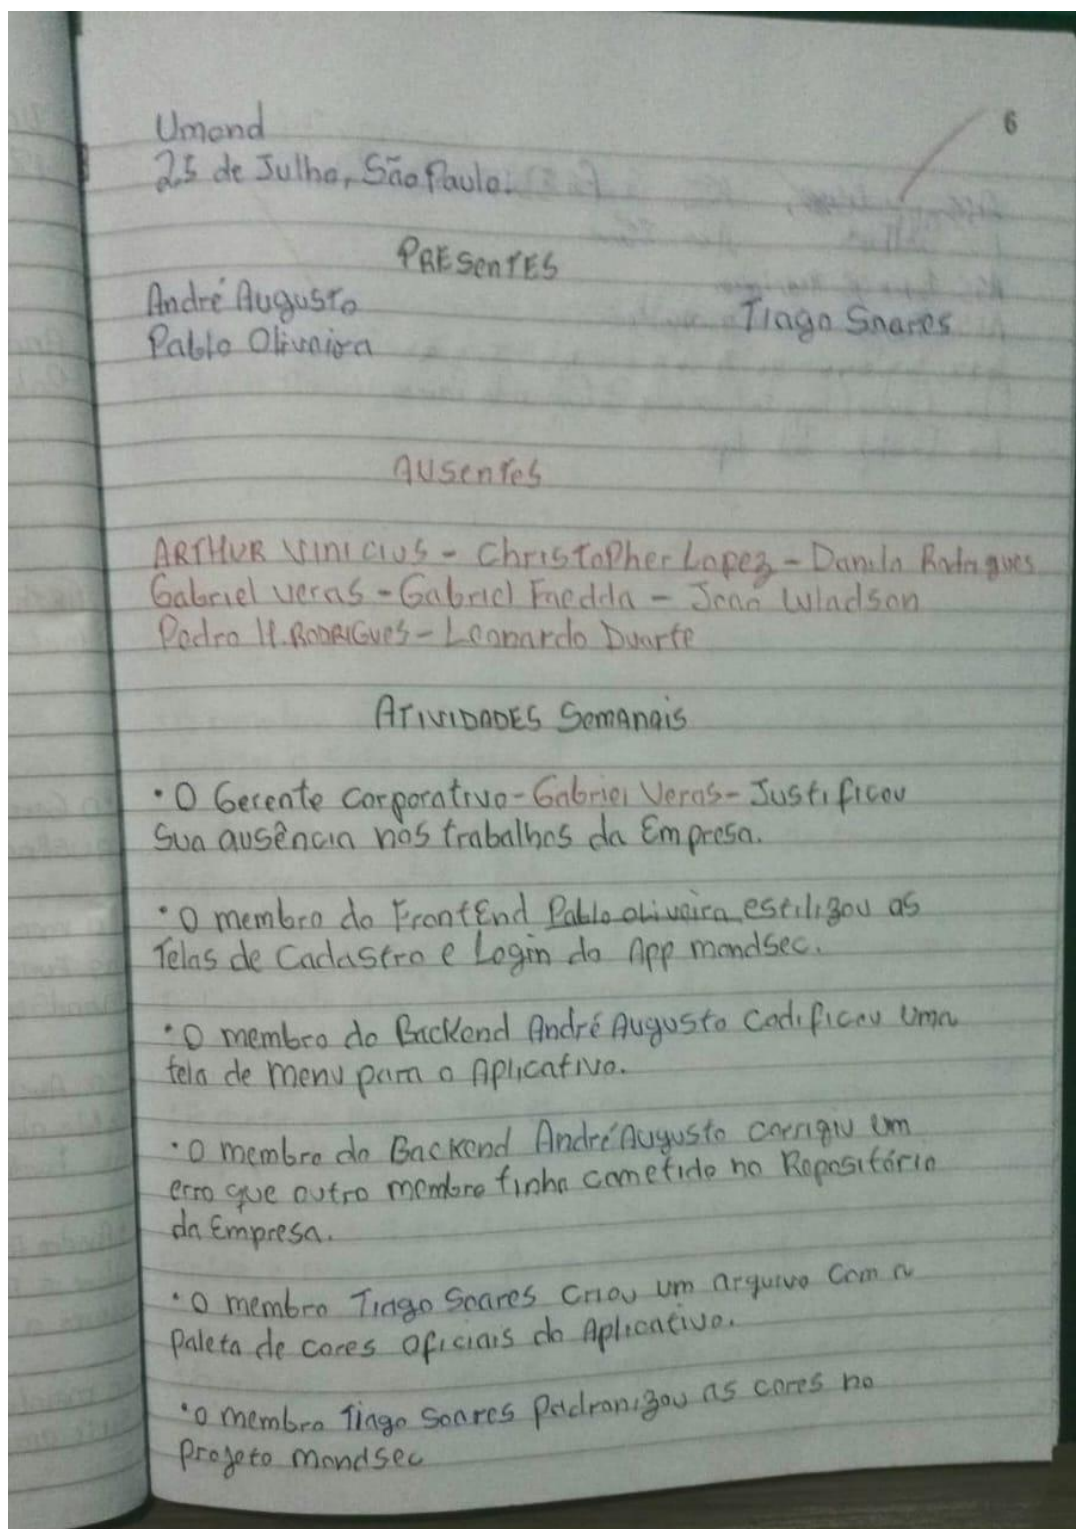 6
Umond
25 de Julho, São Paulo.
PRESENTES
André Augusto
Tiago Soares
Pablo Oliveira
Ausentes
ARTHUR VINICIUS - Christopher Lopez - Danilo Rodrigues
Gabriel Veras - Gabriel Faedda - João Wladson
Pedro H. RODRIGUES - Leonardo Duarte
ATIVIDADES Semanais
• O Gerente corporativo - Gabriel Veras - Justificou
Sua ausência nos trabalhos da Empresa.
• O membro do FrontEnd Pablo oliveira estilizou as
Telas de Cadastro e Login do App mondsec.
• O membro do Backend André Augusto Codificou uma
tela de menu para o Aplicativo.
• O membro do Backend André Augusto corrigiu um
erro que outro membro tinha cometido no Repositório
da Empresa.
• O membro Tiago Soares Criou um arquivo com a
Paleta de cores oficiais do Aplicativo.
• O membro Tiago Soares Padronizou as cores no
Projeto mondsec